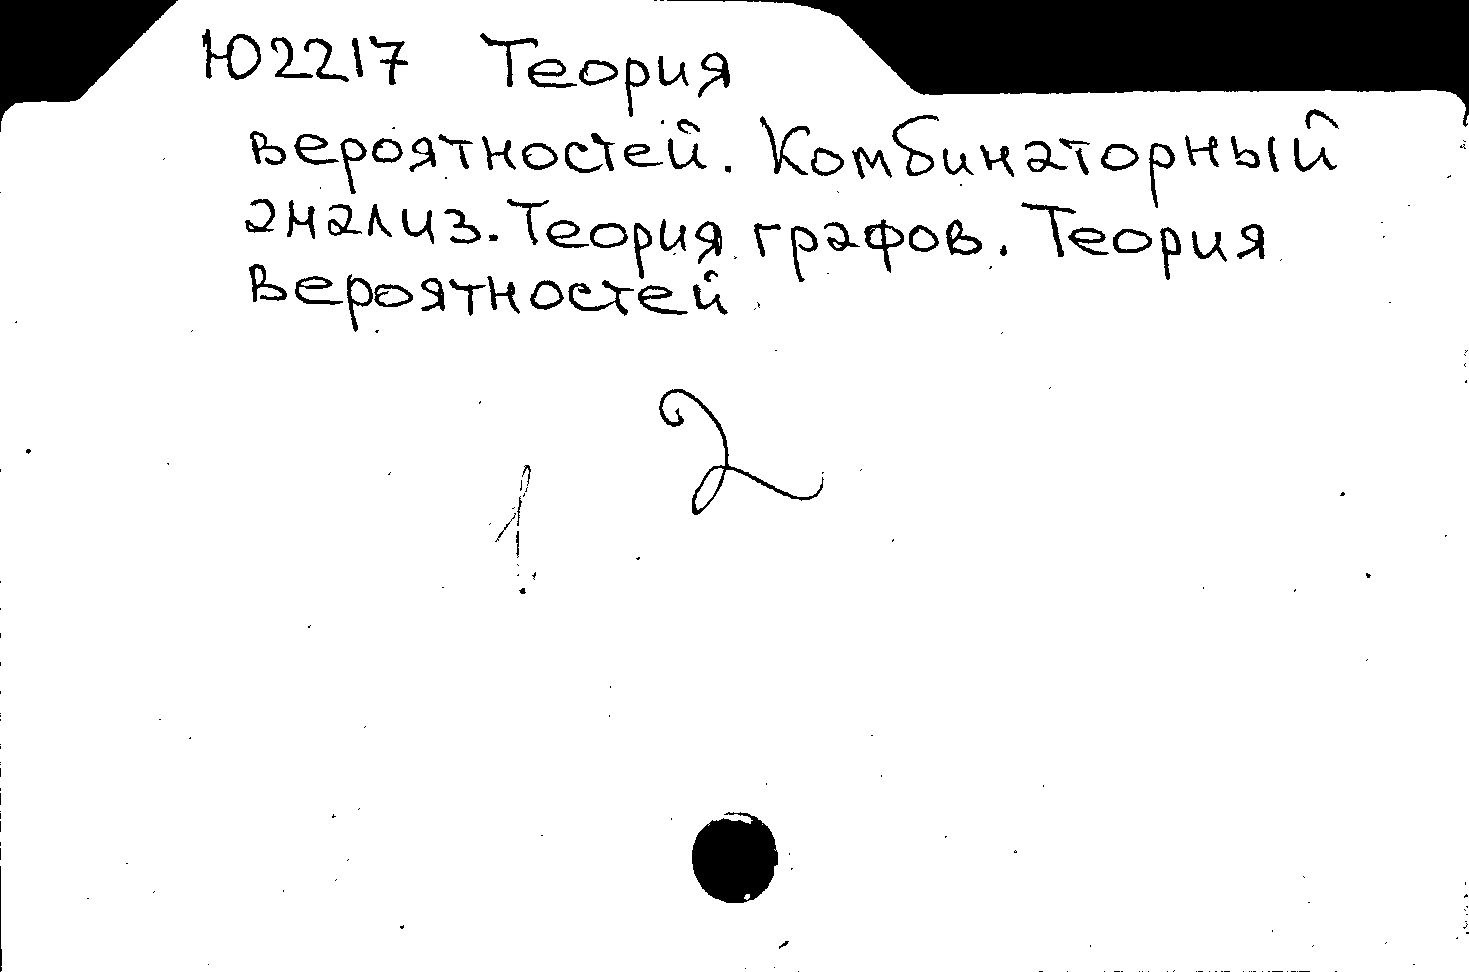 Ю2217 Теория
вероятностей. Комбинаторный
анализ. Теория графов. Теория
вероятностей
2
1